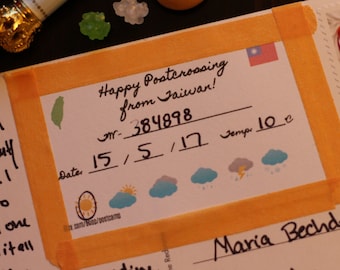 Happy Postcrossing
from Taiwan!
TW- 384898
Date: 15 / 5 / 17 Temp: 10 °C
Maria Bechd
it all
one
I